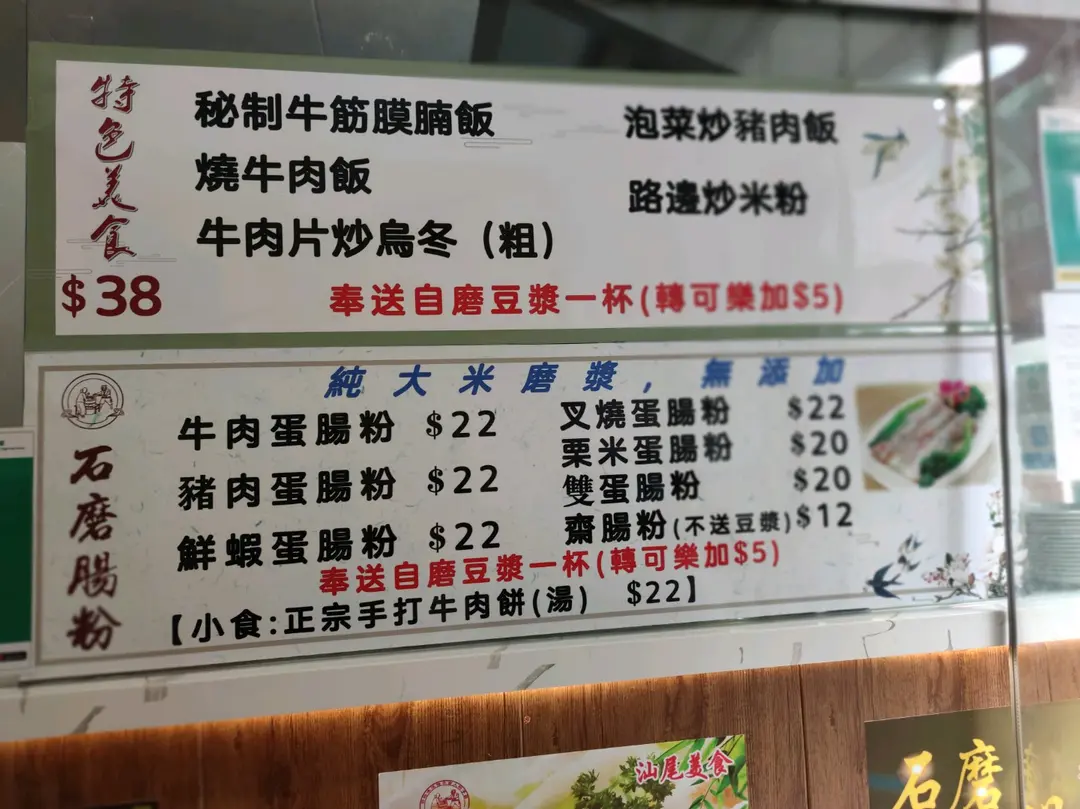 特色美食
$38
秘制牛筋膜腩飯
燒牛肉飯
牛肉片炒烏冬（粗）
泡菜炒豬肉飯
路邊炒米粉
奉送自磨豆漿一杯(轉可樂加$5)
純大米磨漿，無添加
石磨腸粉
牛肉蛋腸粉 $22
豬肉蛋腸粉 $22
鮮蝦蛋腸粉 $22
叉燒蛋腸粉 $22
栗米蛋腸粉 $20
雙蛋腸粉 $20
齋腸粉(不送豆漿) $12
奉送自磨豆漿一杯(轉可樂加$5)
【小食:正宗手打牛肉餅(湯) $22】
汕尾美食
石磨